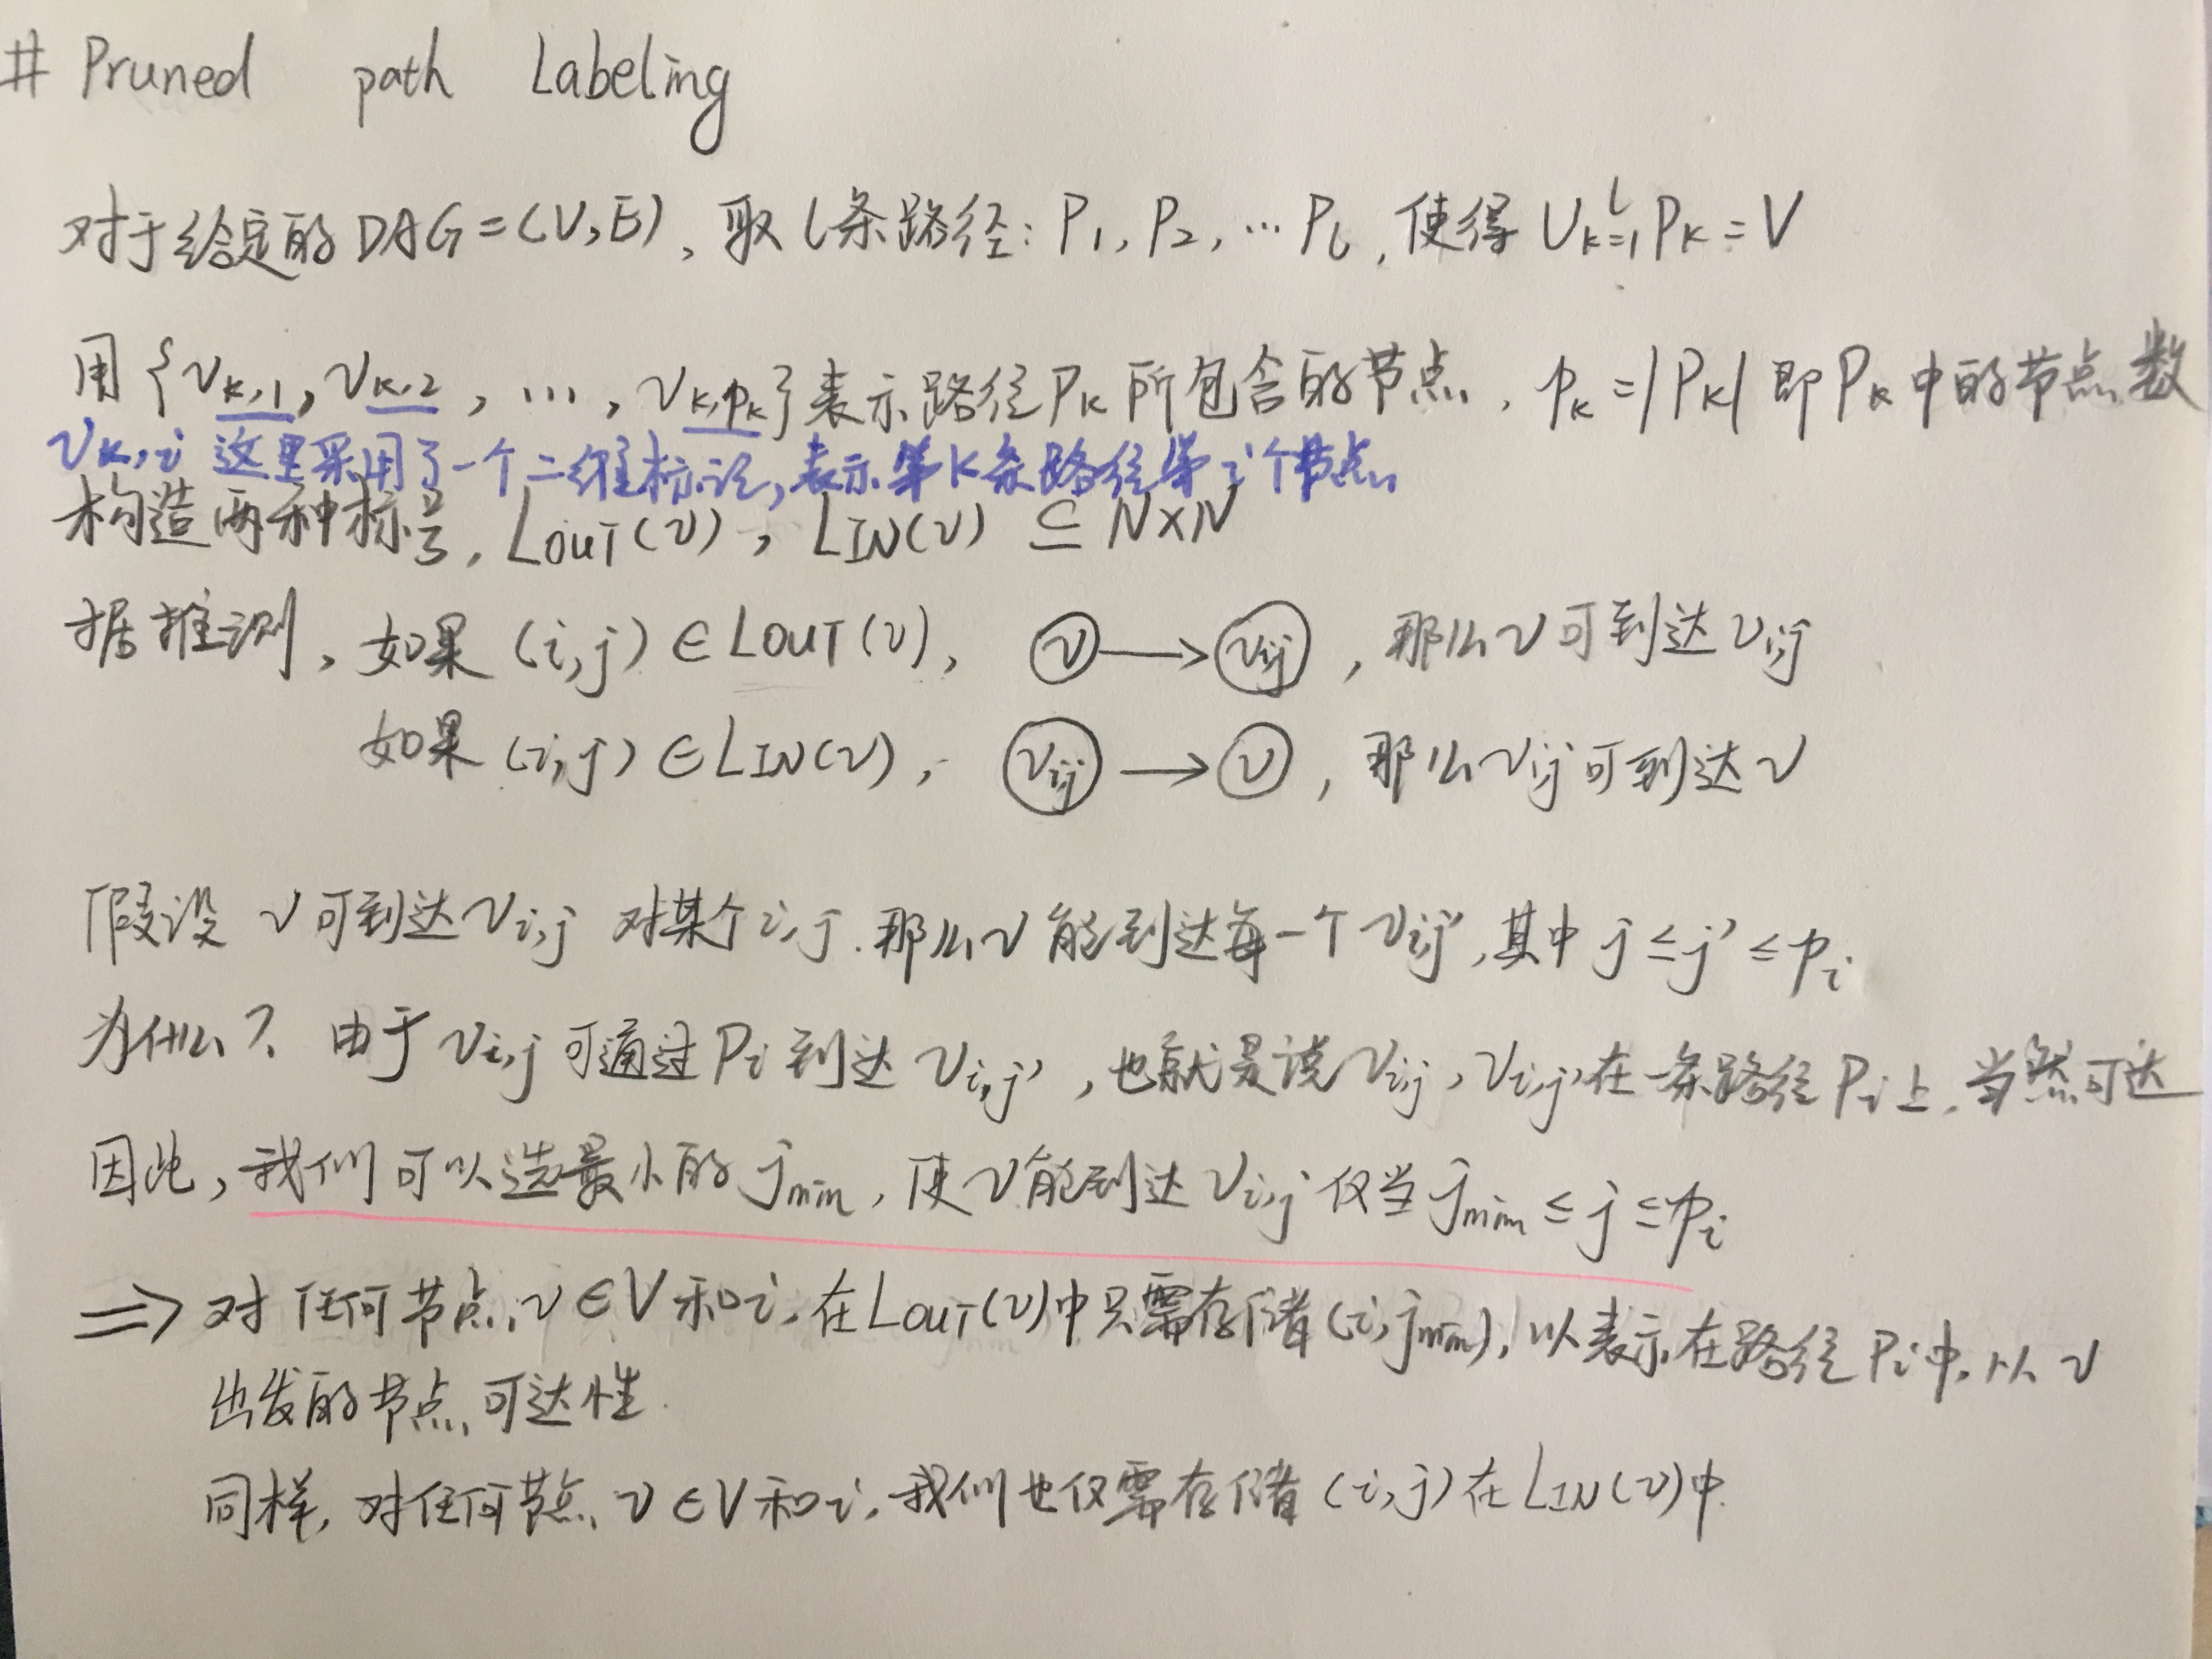 # Pruned path Labeling
对于给定的DAG=(V,E)、取l条路径: P₁, P₂, … Pₗ, 使得 ∪ᵏ₌₁ˡ Pₖ = V
用{vₖ,₁, vₖ,₂, …, vₖ,ₚₖ}表示路径Pₖ所包含的节点, pₖ=|Pₖ| 即Pₖ中的节点数
vₖ,ᵢ 这里采用了一个二维标记, 表示第k条路径第i个节点
来构造两种标号, L_OUT(v), L_IN(v) ⊆ N×N
据推测、如果(i,j)∈L_OUT(v), v → vᵢⱼ, 那么v可到达vᵢⱼ
如果(i,j)∈L_IN(v), vᵢ,ⱼ → v, 那么vᵢⱼ可到达v
假设 v可到达vᵢ,ⱼ 对某个i,j. 那么v能到达每一个vᵢ,ⱼ', 其中j≤j'≤pᵢ
为什么? 由于vᵢ,ⱼ可通过Pᵢ到达vᵢ,ⱼ', 也就是说vᵢ,ⱼ, vᵢ,ⱼ'在一条路径Pᵢ上. 当然可达
因此, 我们可以选最小的jₘᵢₙ, 使v能到达vᵢ,ⱼ 仅当jₘᵢₙ≤j≤pᵢ
⇒ 对任何节点v∈V和i, 在L_OUT(v)中只需存储(i,jₘᵢₙ), 以表示在路径Pᵢ中, 从v
出发的节点可达性.
同样, 对任何节点v∈V和i, 我们也仅需存储(i,j)在L_IN(v)中